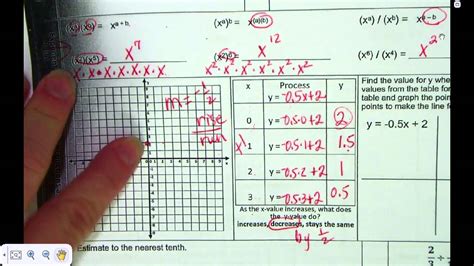 (x^a)(x^b) = x^a+b.
(x^a)^b = x^(a)(b)
(x^a) / (x^b) = x^a-b
= x^7
= x^12
(x^6) / (x^4) = x^2
x·x·x·x·x·x·x
x²·x²·x²·x²·x²·x²
m = -1/2
rise
run
x Process y
y = -0.5x+2
0 y = -0.5·0+2 2
x 1 y = -0.5·1+2 1.5
2 y = -0.5·2+2 1
3 y = -0.5·3+2 0.5
As the x-value increases, what does
the y-value do?
increases, decreases, stays the same
by 1/2
Find the value for y
values from the table
table and graph the point
points to make the line
y = -0.5x + 2
Estimate to the nearest tenth.
2/3 ÷